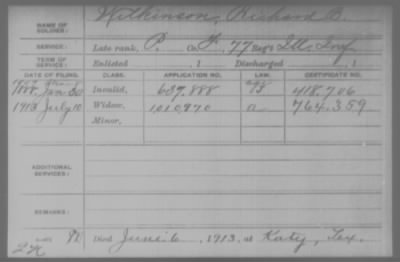 NAME OF SOLDIER: Wilkinson, Richard B.
SERVICE: Late rank, P. Co. F, 77 Reg't Ill. Inf.
TERM OF SERVICE: Enlisted , 1 Discharged , 1
DATE OF FILING. CLASS. APPLICATION NO. LAW. CERTIFICATE NO.
Jan 30 Invalid, 637.888 418.706
1913 July 10 Widow, 1010970 a 764.359
Minor,
ADDITIONAL SERVICES:
REMARKS:
Died June 6, 1913, at Katy, Tex.